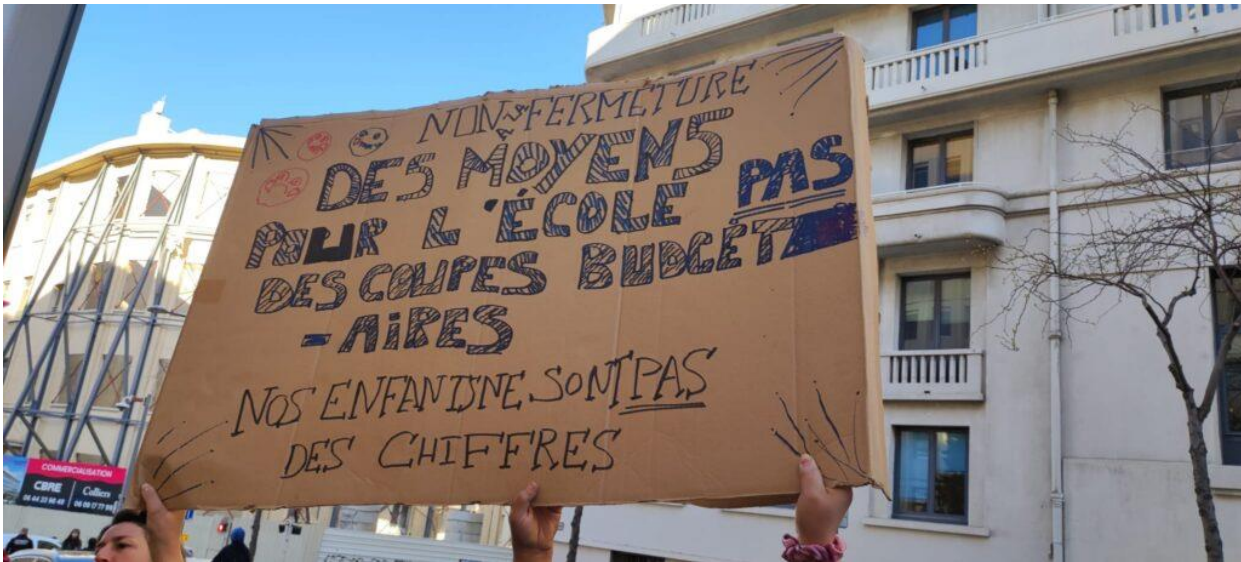 NON À LA FERMETURE
DES MOYENS
POUR L'ÉCOLE PAS
DES COUPES BUDGÉT
-AIRES
NOS ENFANTS NE SONT PAS
DES CHIFFRES
COMMERCIALISATION
CBRE Colliers